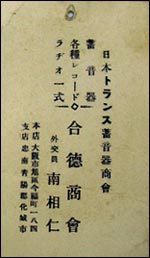 日本トランス蓄音器商會
蓄音器
各種レコード
ラヂオ一式
合德商會
外交員 南相仁
本店 大阪市旭區今福町一八四
支店 忠南青陽郡化城市